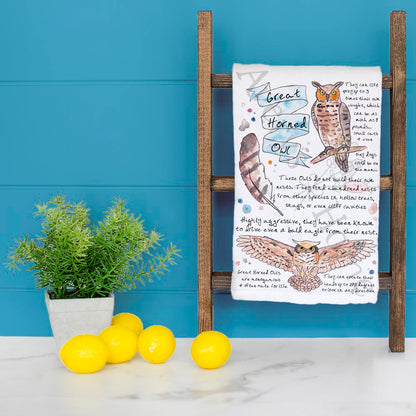 Great
Horned
Owl
They can carry
prey up to 3
times their own
weight, which
can be as
much as 9
pounds.
small cats
+ even
tiny dogs
can be on
the menu
These Owls do not build their own
nests. They find abandoned nests
from other species in hollow trees,
snags, or even other cavities.
Highly aggressive, they have been known
to drive even a bald eagle from their nest.
Great Horned Owls
are monogamous
+ often mate for life
They can rotate their
heads up to 270 degrees
to look in any direction
Great Horned Owls
are monogamous
+ often mate for life.